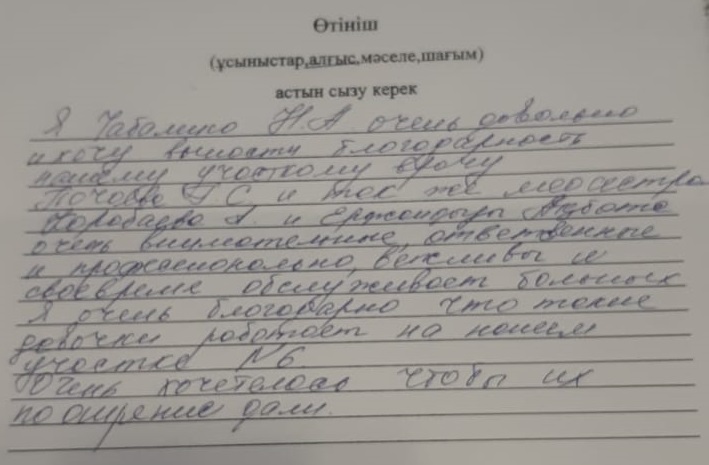 Өтініш
(ұсыныстар,алғыс,мәселе,шағым)
астын сызу керек
Я Н.А. очень довольно
и хочу выности благодарность
нашему участкому врочу
Г.С. и так же медсестра
А. и
очень внимотемние, ответственные
и профасионольно, вежливы и
своевреме обслуживает больных
Я очень благодарно что токие
довочки работоет на нашем
участке №6.
Очень хочетелось чтобы их
поошрение дали.